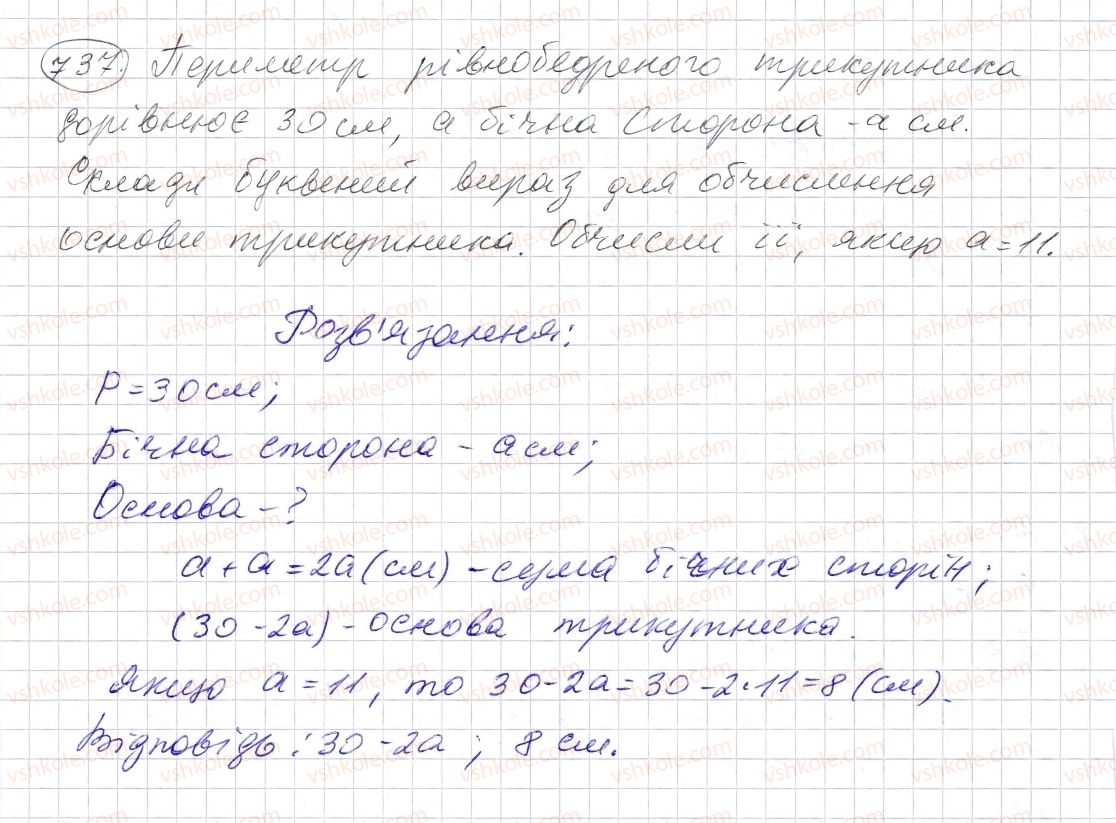 737. Периметр рівнобедреного трикутника
дорівнює 30 см, а бічна сторона - а см.
Склади буквений вираз для обчислення
основи трикутника. Обчисли її, якщо а = 11.
Розв'язання:
Р = 30 см;
Бічна сторона - а см;
Основа - ?
а + а = 2а (см) - сума бічних сторін;
(30 - 2а) - основа трикутника.
Якщо а = 11, то 30 - 2а = 30 - 2·11 = 8 (см).
Відповідь: 30 - 2а ; 8 см.
vshkole.com